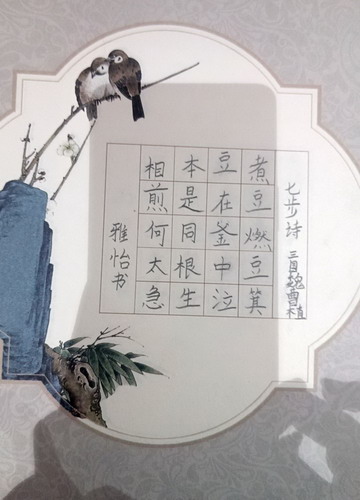 七步诗 三国魏曹植
煮豆燃豆箕
豆在釜中泣
本是同根生
相煎何太急
雅怡书